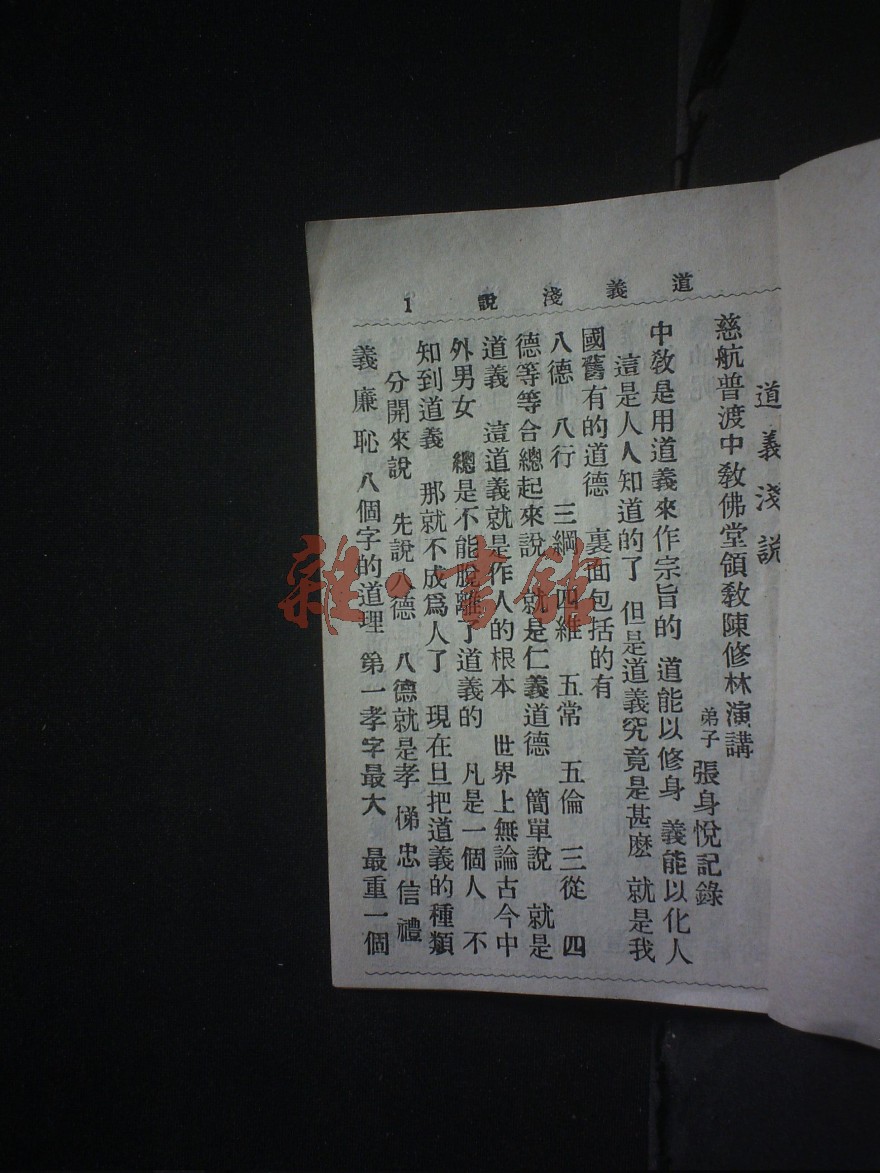 道義淺說 1
道義淺說
慈航普渡中教佛堂領教陳修林演講
弟子 張身悅記錄
中教是用道義來作宗旨的 道能以修身 義能以化人
這是人人知道的了 但是道義究竟是甚麽 就是我
國舊有的道德 裏面包括的有
八德 八行 三綱 四維 五常 五倫 三從 四
德等等合總起來說 就是仁義道德 簡單說 就是
道義 這道義就是作人的根本 世界上無論古今中
外男女 總是不能脫離了道義的 凡是一個人 不
知到道義 那就不成爲人了 現在旦把道義的種類
分開來說 先說八德 八德就是孝悌忠信禮
義廉恥 八個字的道理 第一孝字最大 最重一個
雜·書館